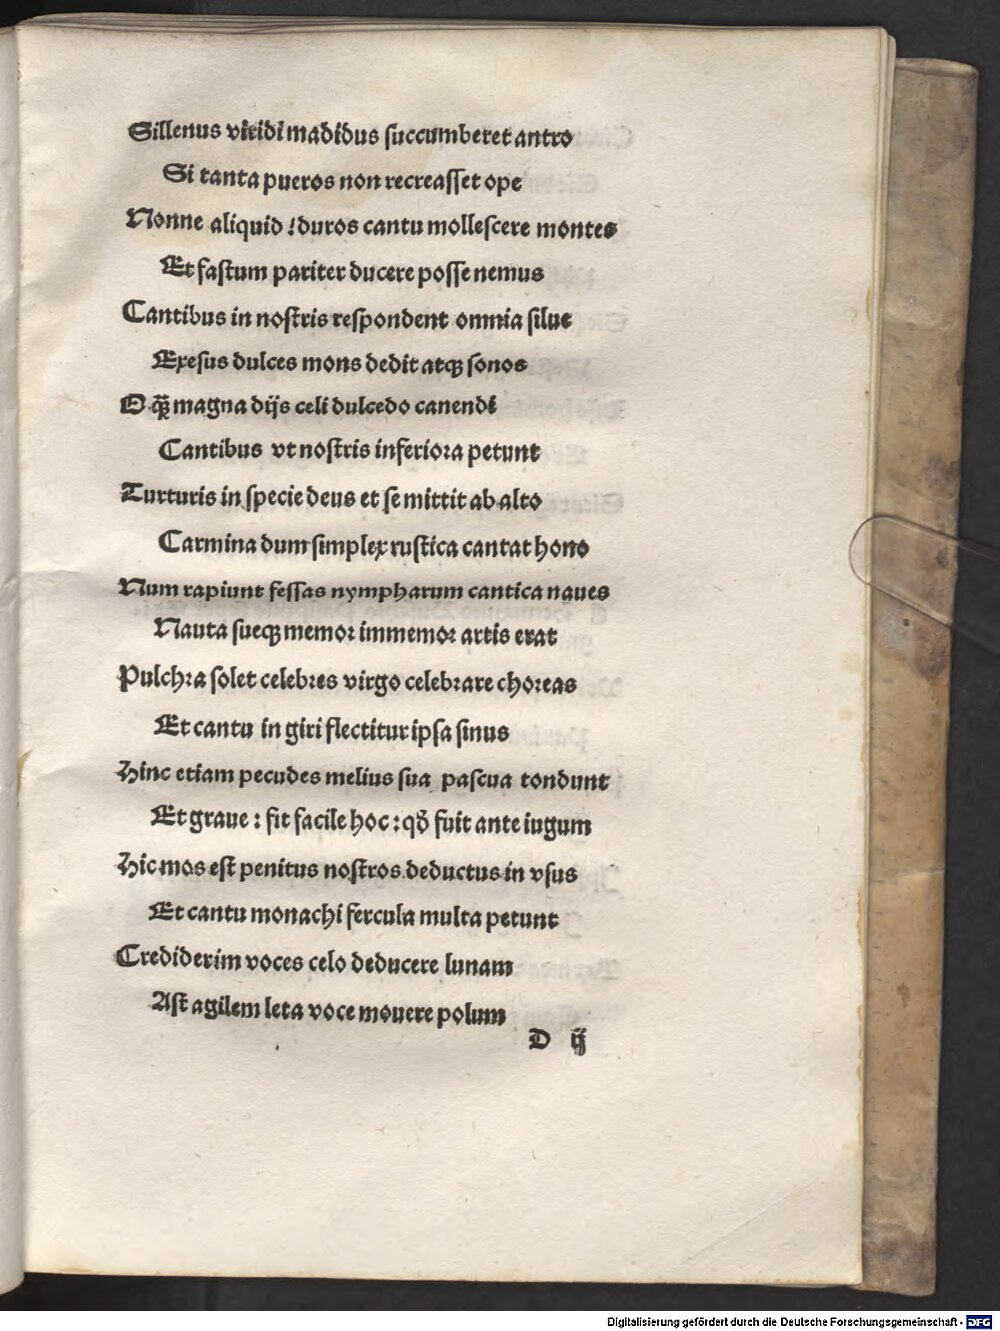 Sillenus viridi madidus succumberet antro
Si tanta pueros non recreasset ope
Nonne aliquid !duros cantu mollescere montes
Et fastum pariter ducere posse nemus
Cantibus in nostris respondent omnia silue
Exesus dulces mons dedit atqꝫ sonos
O qᷓꝫ magna dijs celi dulcedo canendi
Cantibus vt nostris inferiora petunt
Turturis in specie deus et se mittit ab alto
Carmina dum simplex rustica cantat hono
Num rapiunt fessas nympharum cantica naues
Nauta sueqꝫ memor immemor artis erat
Pulchra solet celebres virgo celebrare choreas
Et cantu in giri flectitur ipsa sinus
Hinc etiam pecudes melius sua pascua tondunt
Et graue : fit facile hoc : qō fuit ante iugum
Hic mos est penitus nostros deductus in vsus
Et cantu monachi fercula multa petunt
Crediderim voces celo deducere lunam
Ast agilem leta voce mouere polum
D ij
Digitalisierung gefördert durch die Deutsche Forschungsgemeinschaft - DFG